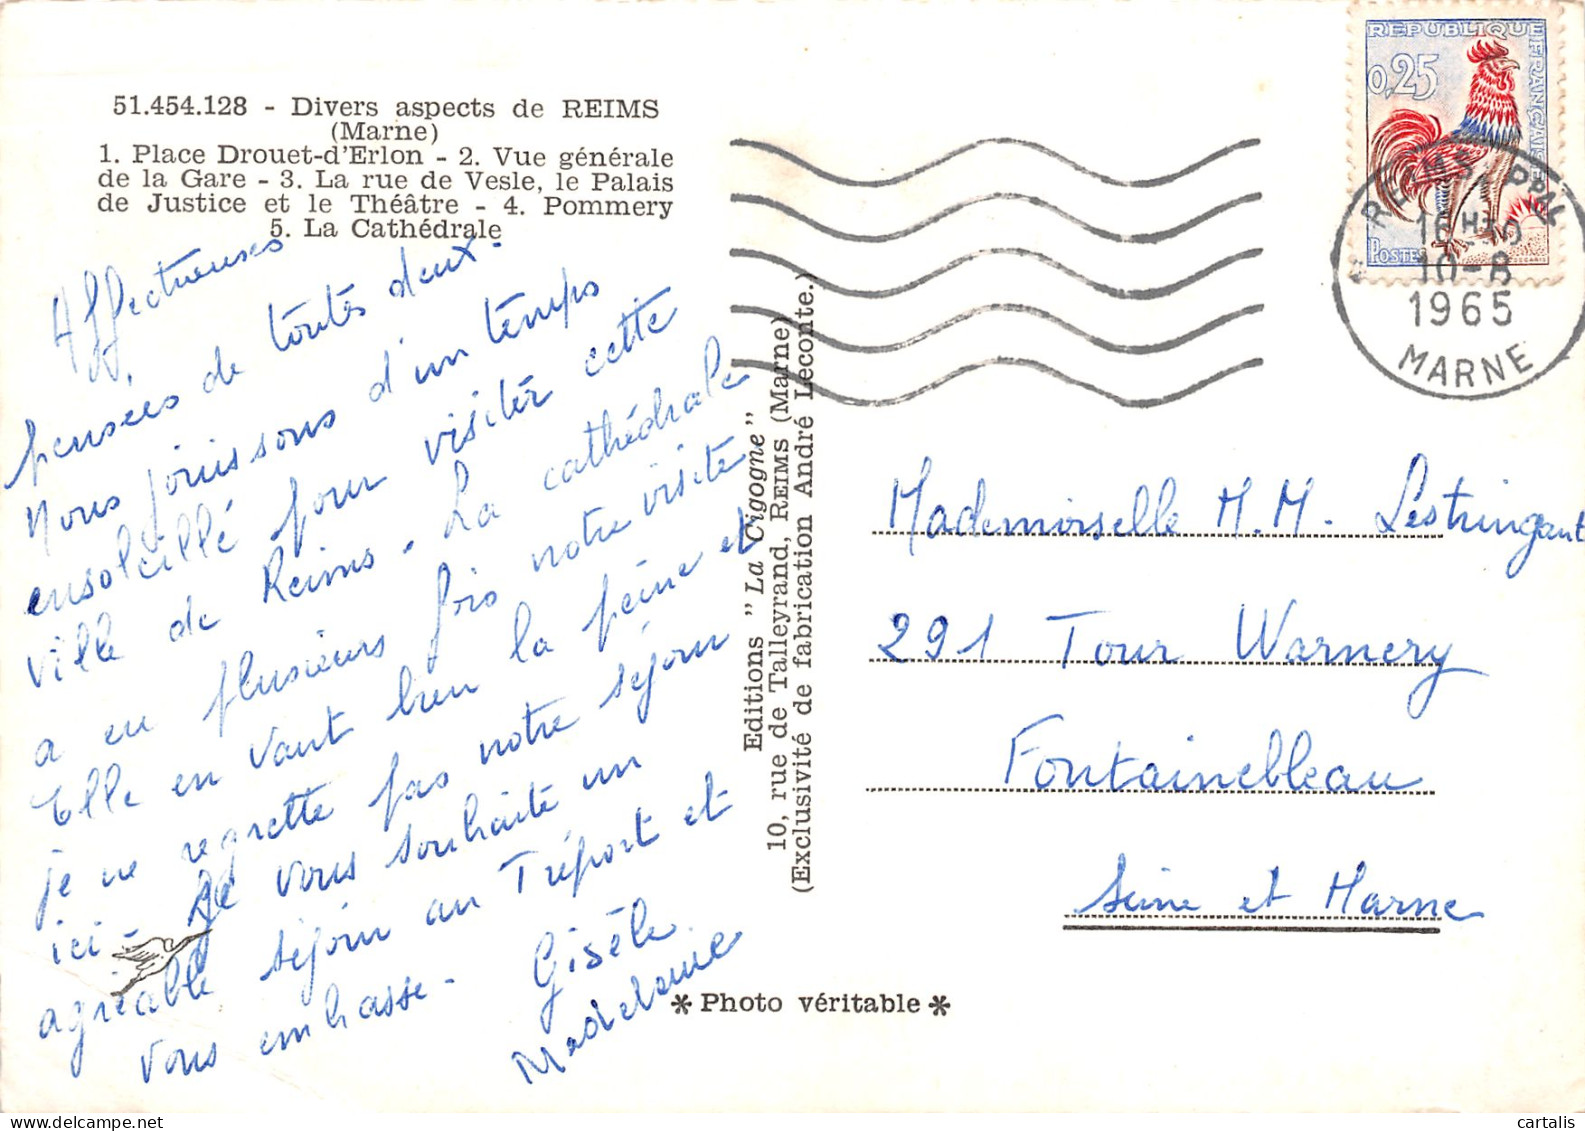 51.454.128 - Divers aspects de REIMS
(Marne)
1. Place Drouet-d'Erlon - 2. Vue générale
de la Gare - 3. La rue de Vesle, le Palais
de Justice et le Théâtre - 4. Pommery
5. La Cathédrale
Affectueuses
pensées de toutes deux.
Nous jouissons d'un temps
ensoleillé pour visiter cette
ville de Reims. La cathédrale
a eu plusieurs fois notre visite
Elle en vaut bien la peine et
je ne regrette pas notre séjour
ici - Je vous souhaite un
agréable séjour au Tréport et
vous embrasse - Gisèle
Madeleine
Editions "La Cigogne"
10, rue de Talleyrand, REIMS (Marne)
(Exclusivité de fabrication André Leconte.)
* Photo véritable *
REPUBLIQUE FRANÇAISE
0,25
POSTES
REIMS PPAL
10-8
1965
MARNE
Mademoiselle M.M. Lestringant
291 Tour Warnery
Fontainebleau
Seine et Marne
cartalis
delcampe.net